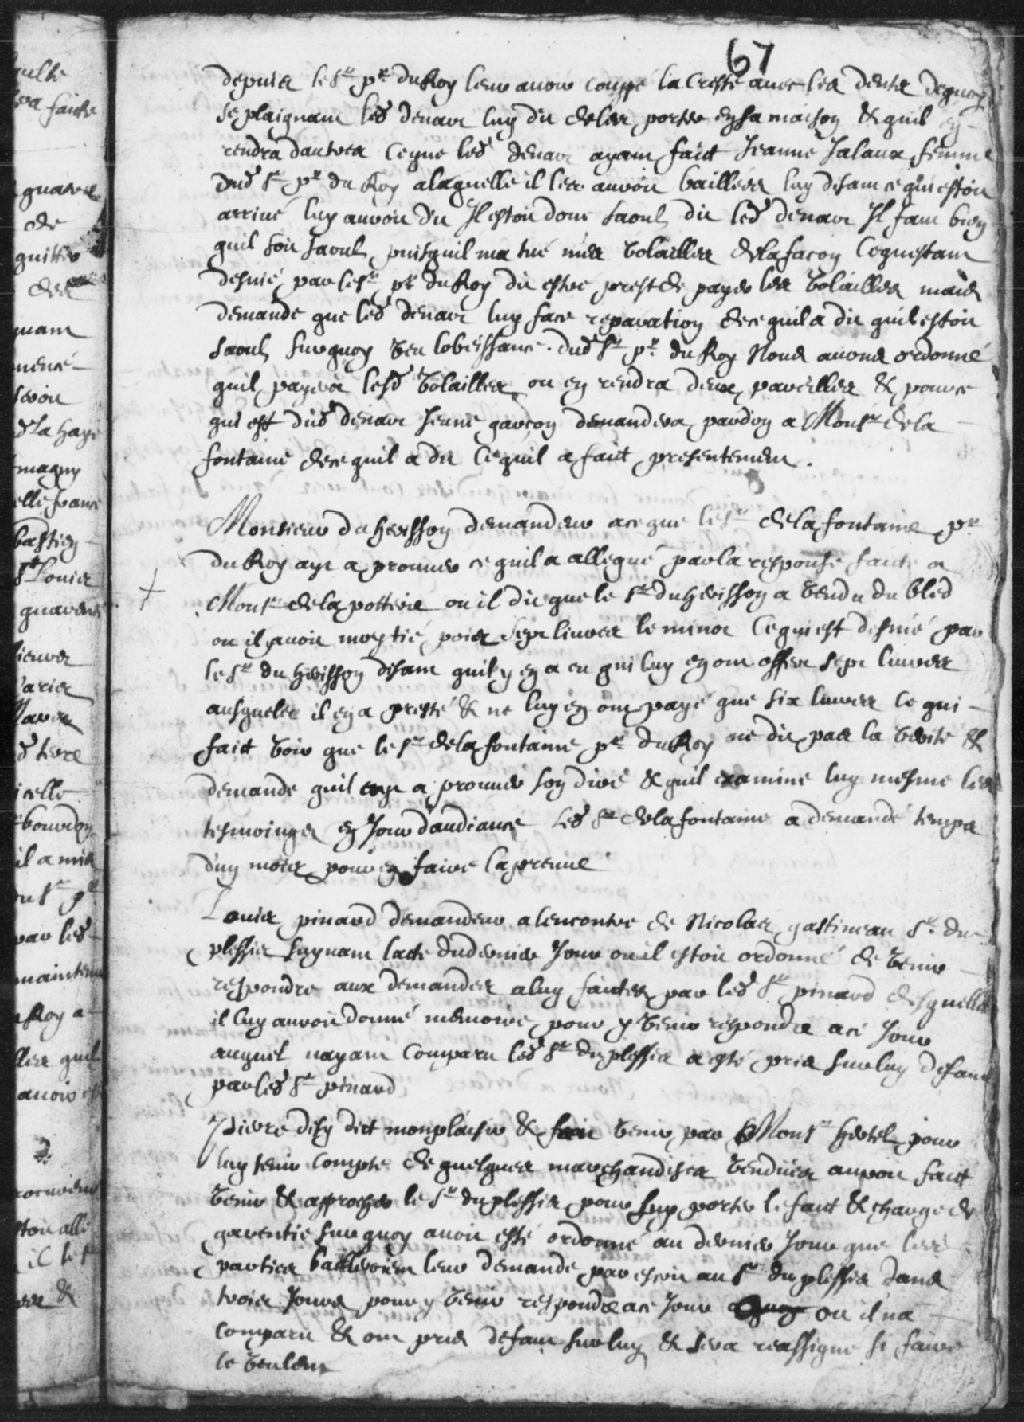 67
depuis le Sr pr du Roy leur avoir couppé la teste avec les dents dequoy
se plaignant led denavt luy dit de les porter en sa maison & quil en
rendra dautres Ce que led denavt ayant faict Jeanne Jalaux femme
dud Sr pr du Roy a laquelle il les avoit baillees luy disant ce qui estoit
arrivé luy auroit dit Il estoit donc saoul dit led denavt Il faut bien
quil soit saoul puisquil ma tué mes volailles de la facon Ce questant
desnié par le Sr pr du Roy dit estre prest de payer les volailles mais
demande que led denavt luy face reparation de ce quil a dit quil estoit
saoul sur quoy veu lobeissance dud Sr pr du Roy Nous avons ordonné
quil payera lesd volailles ou en rendra deux pareilles & pource
qui est dud denavt Jeune garcon demandera pardon a Monsr de la
fontaine de ce quil a dit Ce quil a faict presentement .
Monsieur du herisson demandeur a ce que le Sr de la fontaine pr
du Roy aye a prouver ce quil a allegué par la response faite a
Monsr de la potterie ou il dit que le Sr du herisson a vendu du bled
ou il y avoit moytié pois sept livres le minot Ce qui est desnié par
le Sr du herisson disant quil y en a eu qui luy en ont offert sept livres
ausquels il en a presté & ne luy en ont payé que six livres ce qui
faict voir que le Sr de la fontaine pr du Roy ne dit pas la verité &
demande quil aye a prouver son dire & quil examine luy mesme les
tesmoings en Jour daudiance Led Sr de la fontaine a demandé temps
dun mois pour en faire la preuve
Louis pinard demandeur a lencontre de Nicolas gastineau Sr du
plessis suyvant lacte du dernier Jour ou il estoit ordonné de venir
respondre aux demandes a luy faites par led Sr pinard desquelles
il luy auroit donné memoire pour y venir respondre a ce Jour
auquel nayant Comparu led Sr duplessis a esté pris sur luy defaut
par led Sr pinard
Pierre disy dict monplaisir & fait venir par Monsr hertel pour
luy tenir compte de quelques marchandises vendues auroit faict
venir & approcher le Sr duplessis pour supporter le faict & charge de
garentie sur quoy avoit esté ordonné au dernier Jour que les
parties bailleroient leur demande par escrit au Sr duplessis dans
trois Jours pour y venir respondre a ce Jour ou il na
comparu & ont pris defaut sur luy & sera reassigné si faire
le veulent